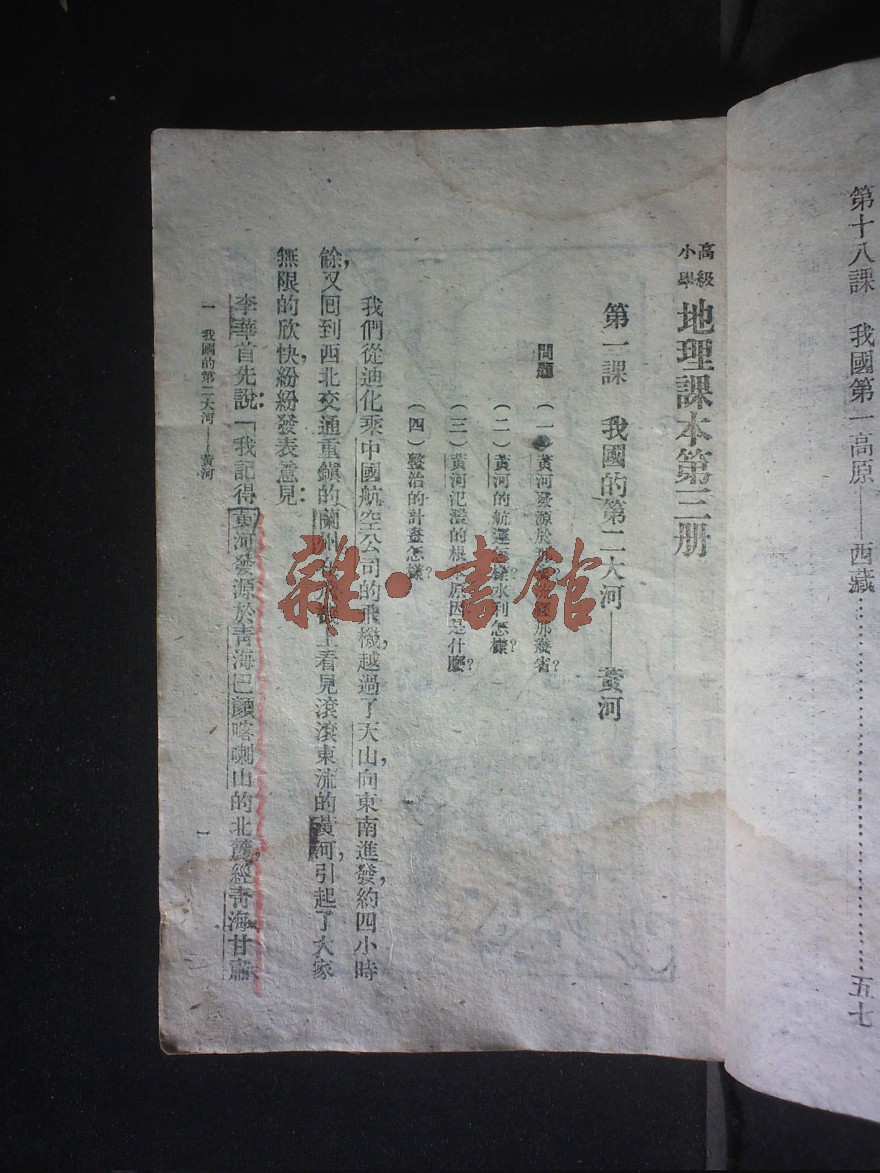 第十八課　我國第一高原——西藏……………………五七
高級小學 地理課本第三册
第一課　我國的第二大河——黃河
問題　（一）黃河發源於那流經那幾省？
（二）黃河的航運怎樣？水利怎樣？
（三）黃河氾濫的根本原因是什麼？
（四）整治的計畫怎樣？
我們從迪化乘中國航空公司的飛機，越過了天山，向東南進發，約四小時
餘，又囘到西北交通重鎮的蘭州，看見滾滾東流的黃河，引起了大家
無限的欣快，紛紛發表意見：
李華首先說：「我記得黃河發源於青海巴顏喀喇山的北麓，經青海甘肅
一　我國的第二大河——黃河
一
雜·書館